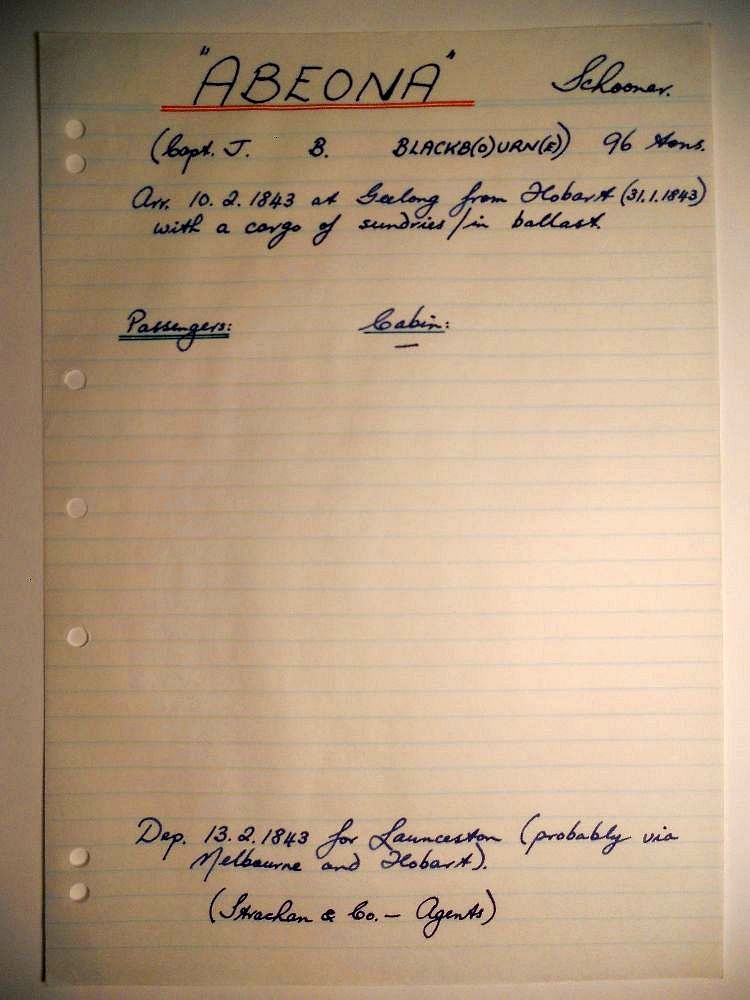 "ABEONA" Schooner.
(Capt. J. B. BLACKB(O)URN(E)) 96 tons.
Arr. 10.2.1843 at Geelong from Hobart (31.1.1843)
with a cargo of sundries/in ballast.
Passengers: Cabin:
—
Dep. 13.2.1843 for Launceston (probably via
Melbourne and Hobart).
(Strachan & Co. — Agents)